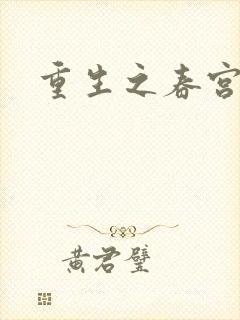 重生之春宫
黄君璧